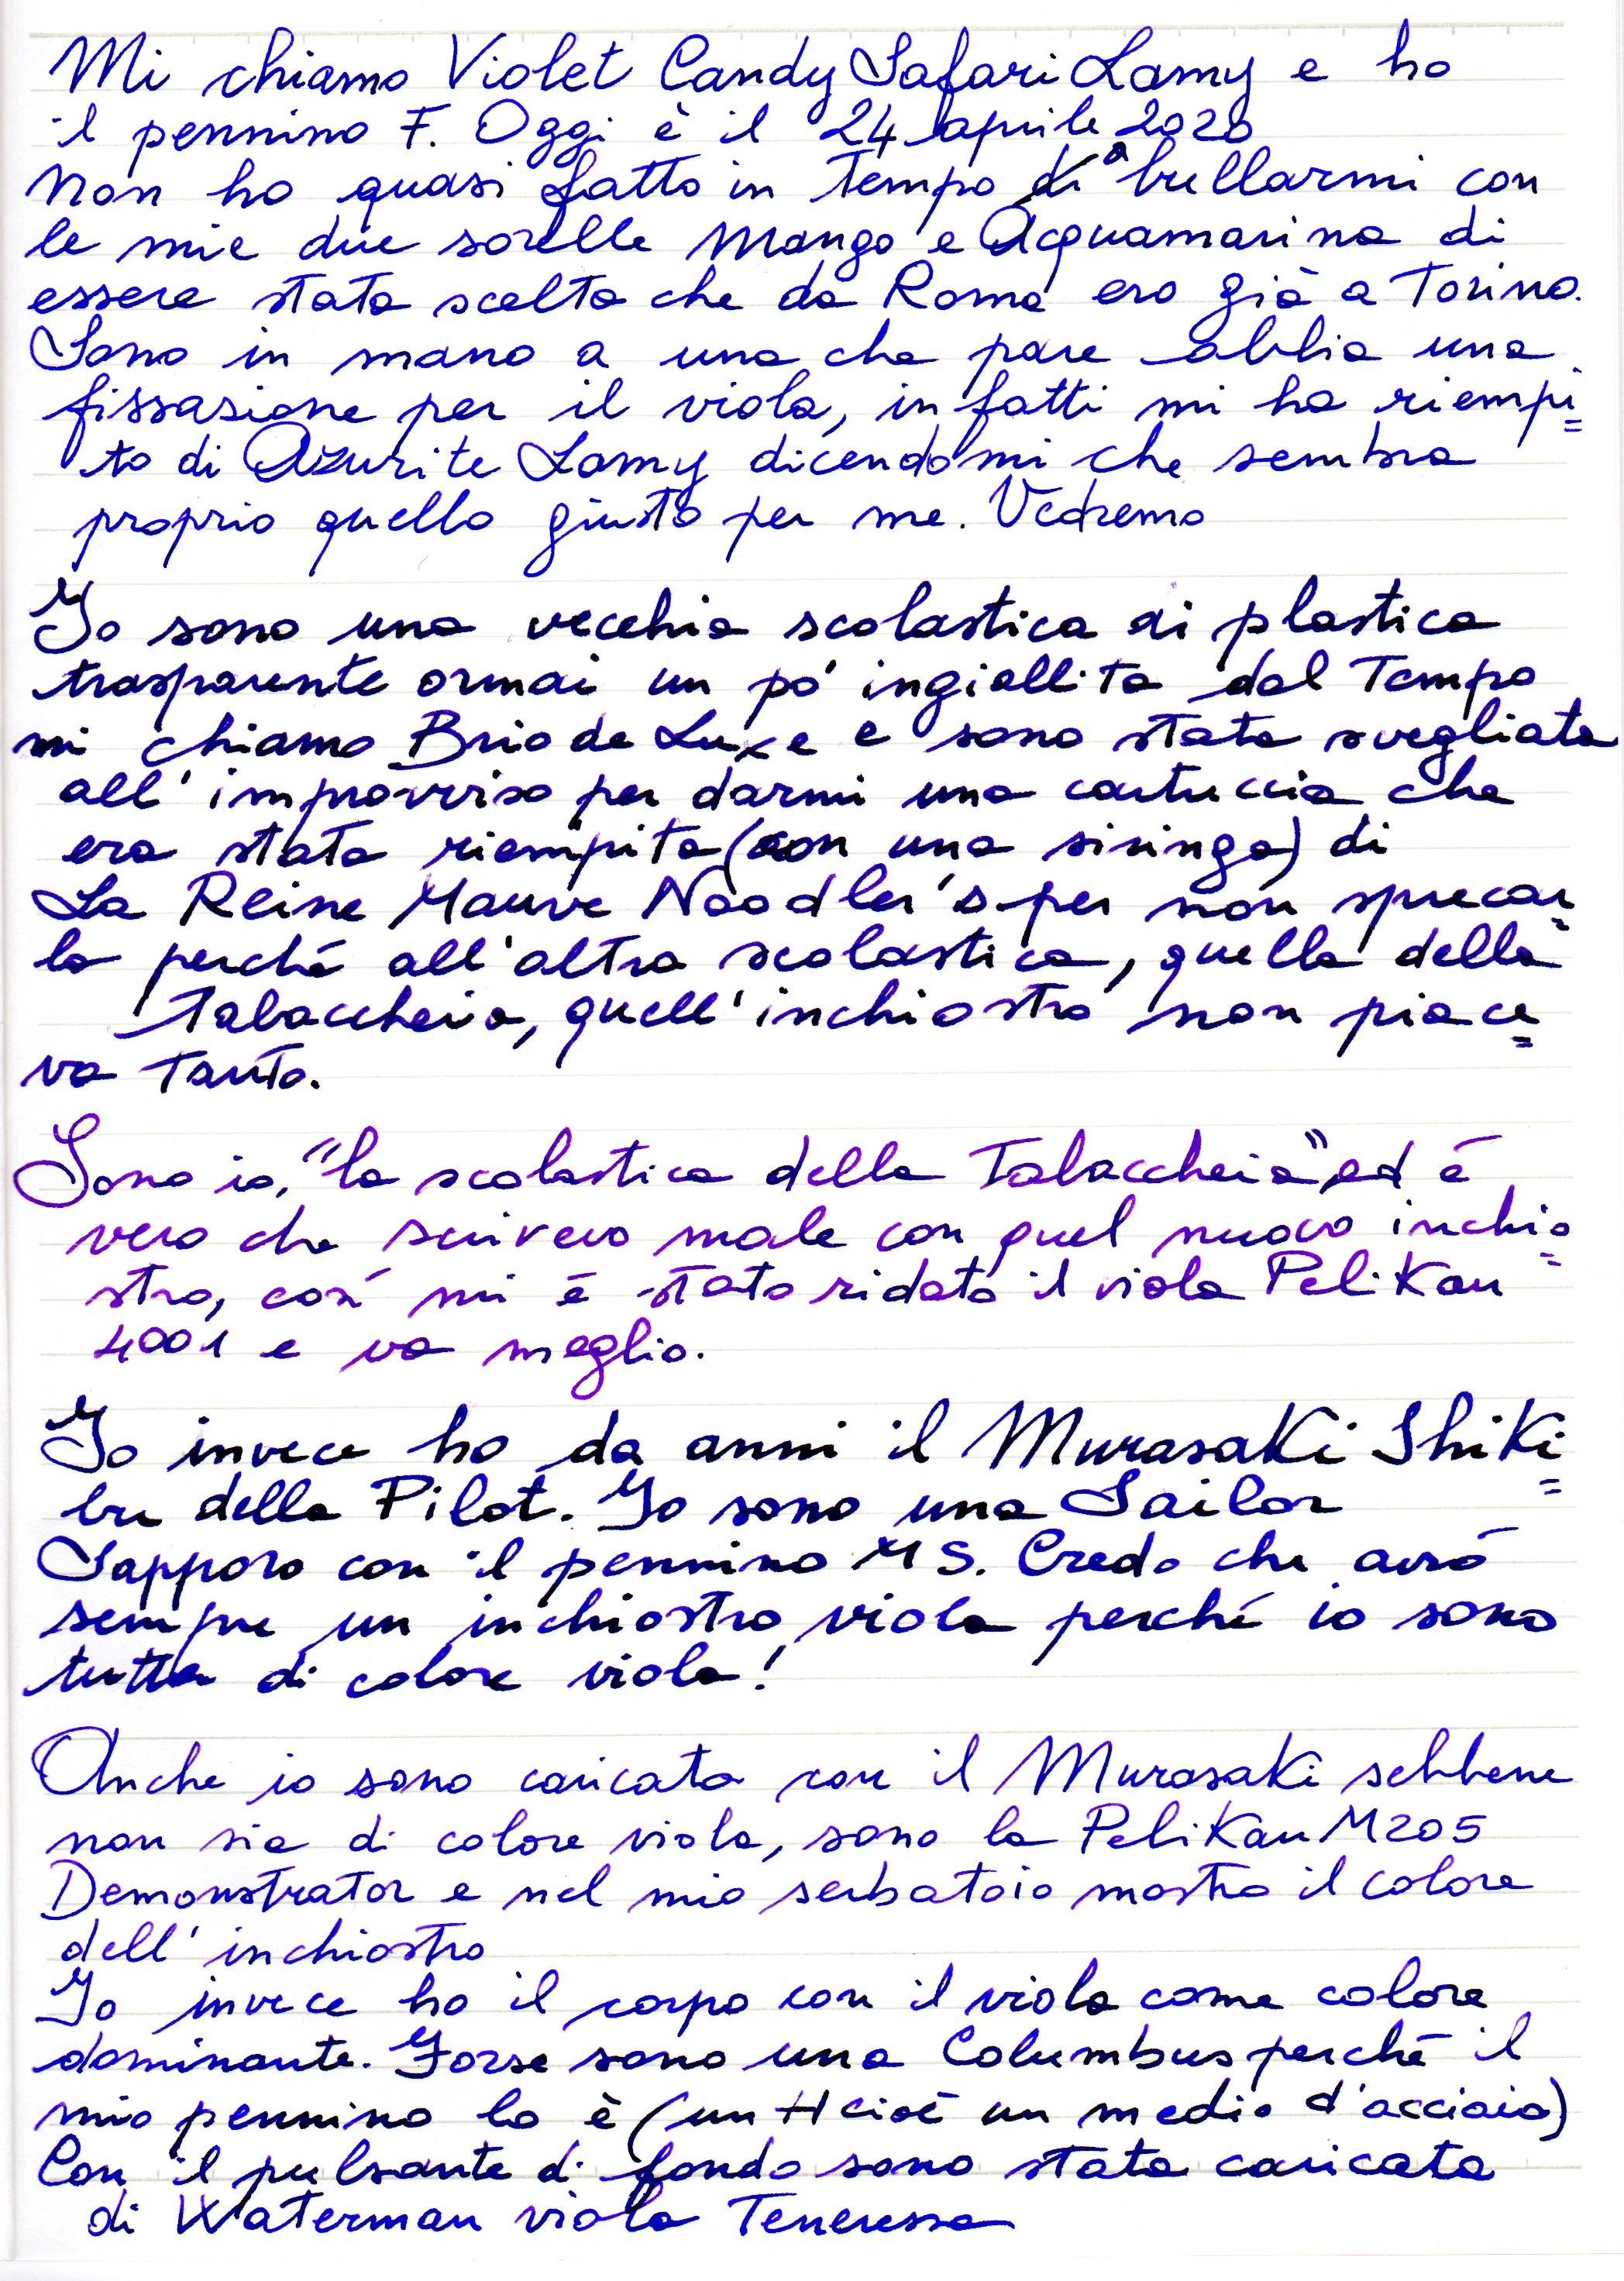 Mi chiamo Violet Candy Safari Lamy e ho
il pennino F. Oggi è il 24 aprile 2020
Non ho quasi fatto in tempo di a bullarmi con
le mie due sorelle Mango e Acquamarina di
essere stata scelta che da Roma ero già a Torino.
Sono in mano a una che pare abbia una
fissazione per il viola, infatti mi ha riempi=
to di Azurite Lamy dicendomi che sembra
proprio quello giusto per me. Vedremo
Io sono una vecchia scolastica di plastica
trasparente ormai un pò ingiallita dal tempo
mi chiamo Brio de Luxe e sono stata svegliata
all'improvviso per darmi una cartuccia che
era stata riempita (con una siringa) di
La Reine Mauve Noodler's per non sprecar=
la perché all'altra scolastica, quella della
Tabaccheria, quell'inchiostro non piace=
va tanto.
Sono io, "la scolastica della Tabaccheria" ed è
vero che scrivevo male con quel nuovo inchio=
stro, così mi è stato ridato il viola Pelikan
4001 e va meglio.
Io invece ho da anni il Murasaki Shiki=
bu della Pilot. Io sono una Sailor
Sapporo con il pennino MS. Credo che avrò
sempre un inchiostro viola perché io sono
tutta di colore viola!
Anche io sono caricata con il Murasaki sebbene
non sia di colore viola, sono la Pelikan M205
Demonstrator e nel mio serbatoio mostro il colore
dell'inchiostro
Io invece ho il corpo con il viola come colore
dominante. Forse sono una Columbus perché il
mio pennino lo è (un H cioè un medio d'acciaio)
Con il pulsante di fondo sono stata caricata
di Waterman viola Tenerezza